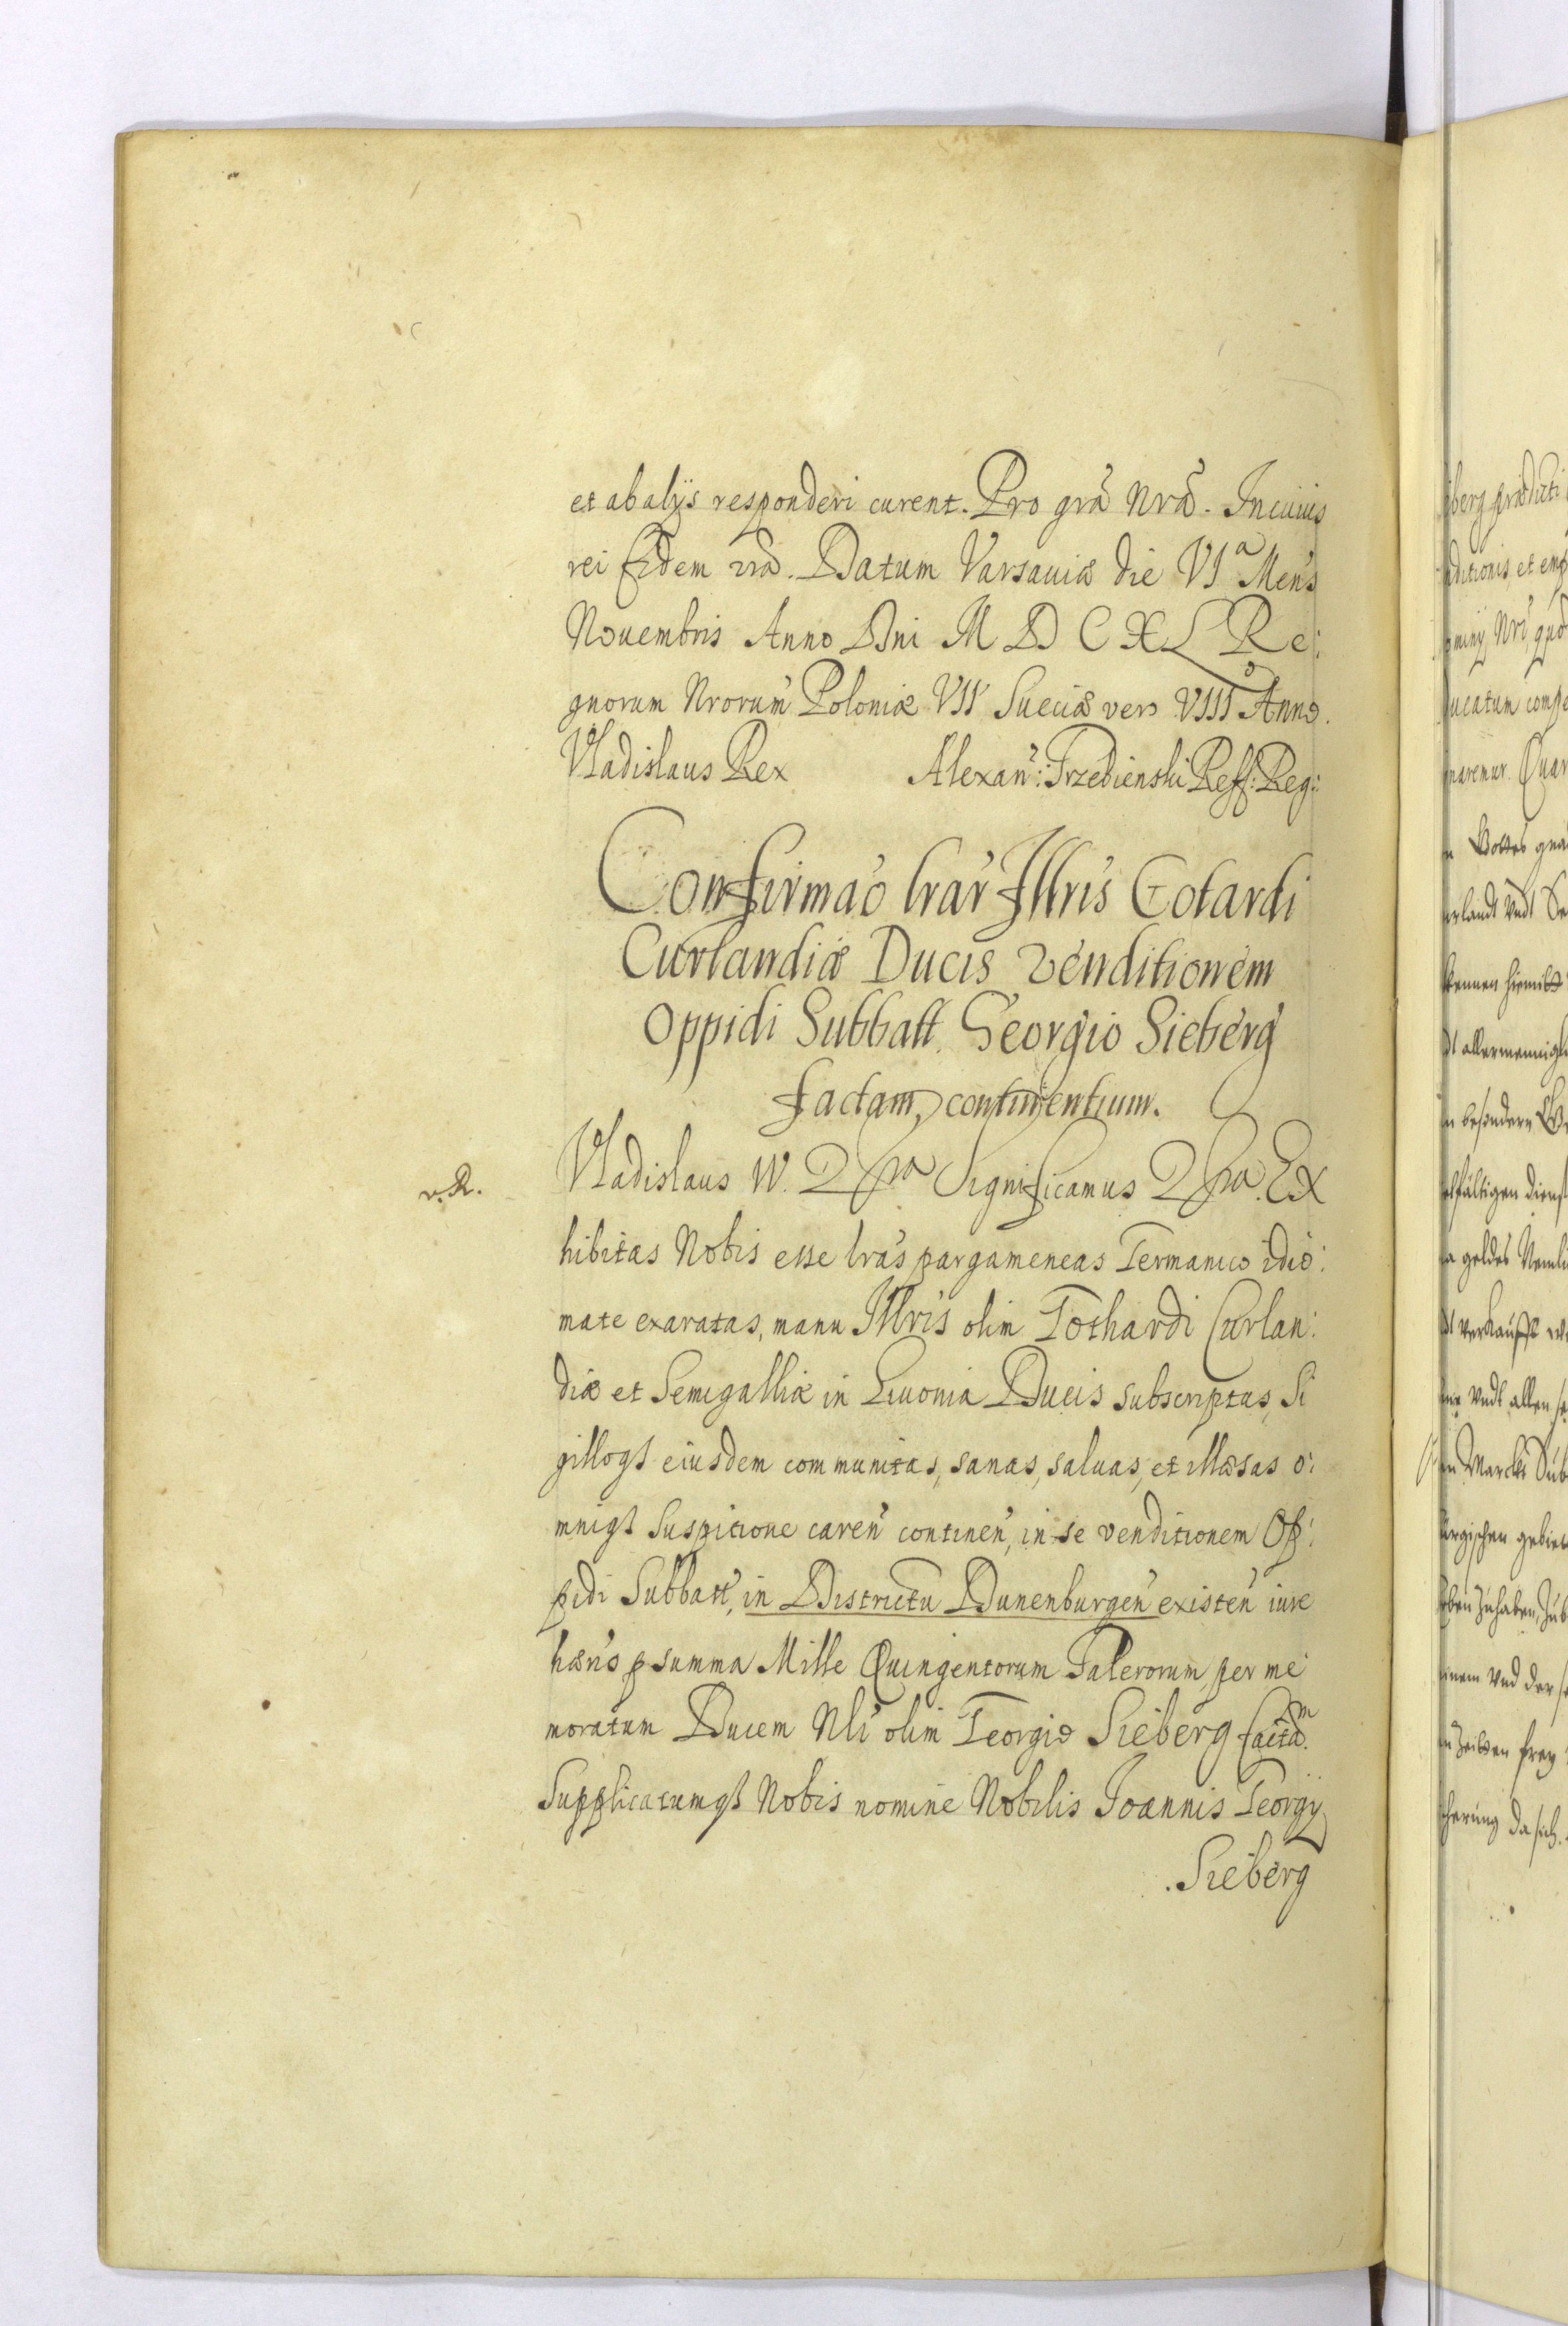 et abalÿs responderi curent. Pro grã Nrã. In cuius
rei fidem nrã. Datum Varsauiæ die VI<sup>a</sup> Mens
Nouembris Anno Dni M D C XL Re:
gnorum Nrorum Poloniæ VII Sueciæ vero VIII<sup>o</sup> Anno.
Vladislaus Rex Alexan: Trzebienski Reff: Reg:
Confirmao lrar Illris Gotardi
Curlandiæ Ducis venditionem
Oppidi Subbatt Georgio Sieberg
factam, continentium.
v. R.
Vladislaus IV. Significamus Ex
hibitas Nobis esse lras pargameneas Germanico idio:
mate exaratas, manu Illris olim Gothardi Curlan:
diæ et Semigalliæ in Liuonia Ducis subscriptas, Si
gilloq₃ eiusdem communitas, sanas, saluas, et illæsas o:
mniq₃ suspitione caren continen, in se venditionem Op:
pidi Subbatt, in Districtu Dunenburgen existen iure
hærio p summa Mille Quingentorum Talerorum, per me
moratum Ducem Nli olim Georgio Sieberg factã<sup>m</sup>.
Supplicatumq₃ Nobis nomine Nobilis Joannis Georgÿ
Sieberg
berg prædicti
ditionis, et emp
ucatum compe
naremur. Quar
Gottes gna
rlandt vndt Se
kennen hiemitt
dt allermennigl
n besondern
lfältigen dienst
a geldes Nemli
dt verkaufft w
vndt allen
n Marckt Sub
urgischen gebiet
ben zuhaben, zub
inem vnd der
zeitten frey
cherung da sich